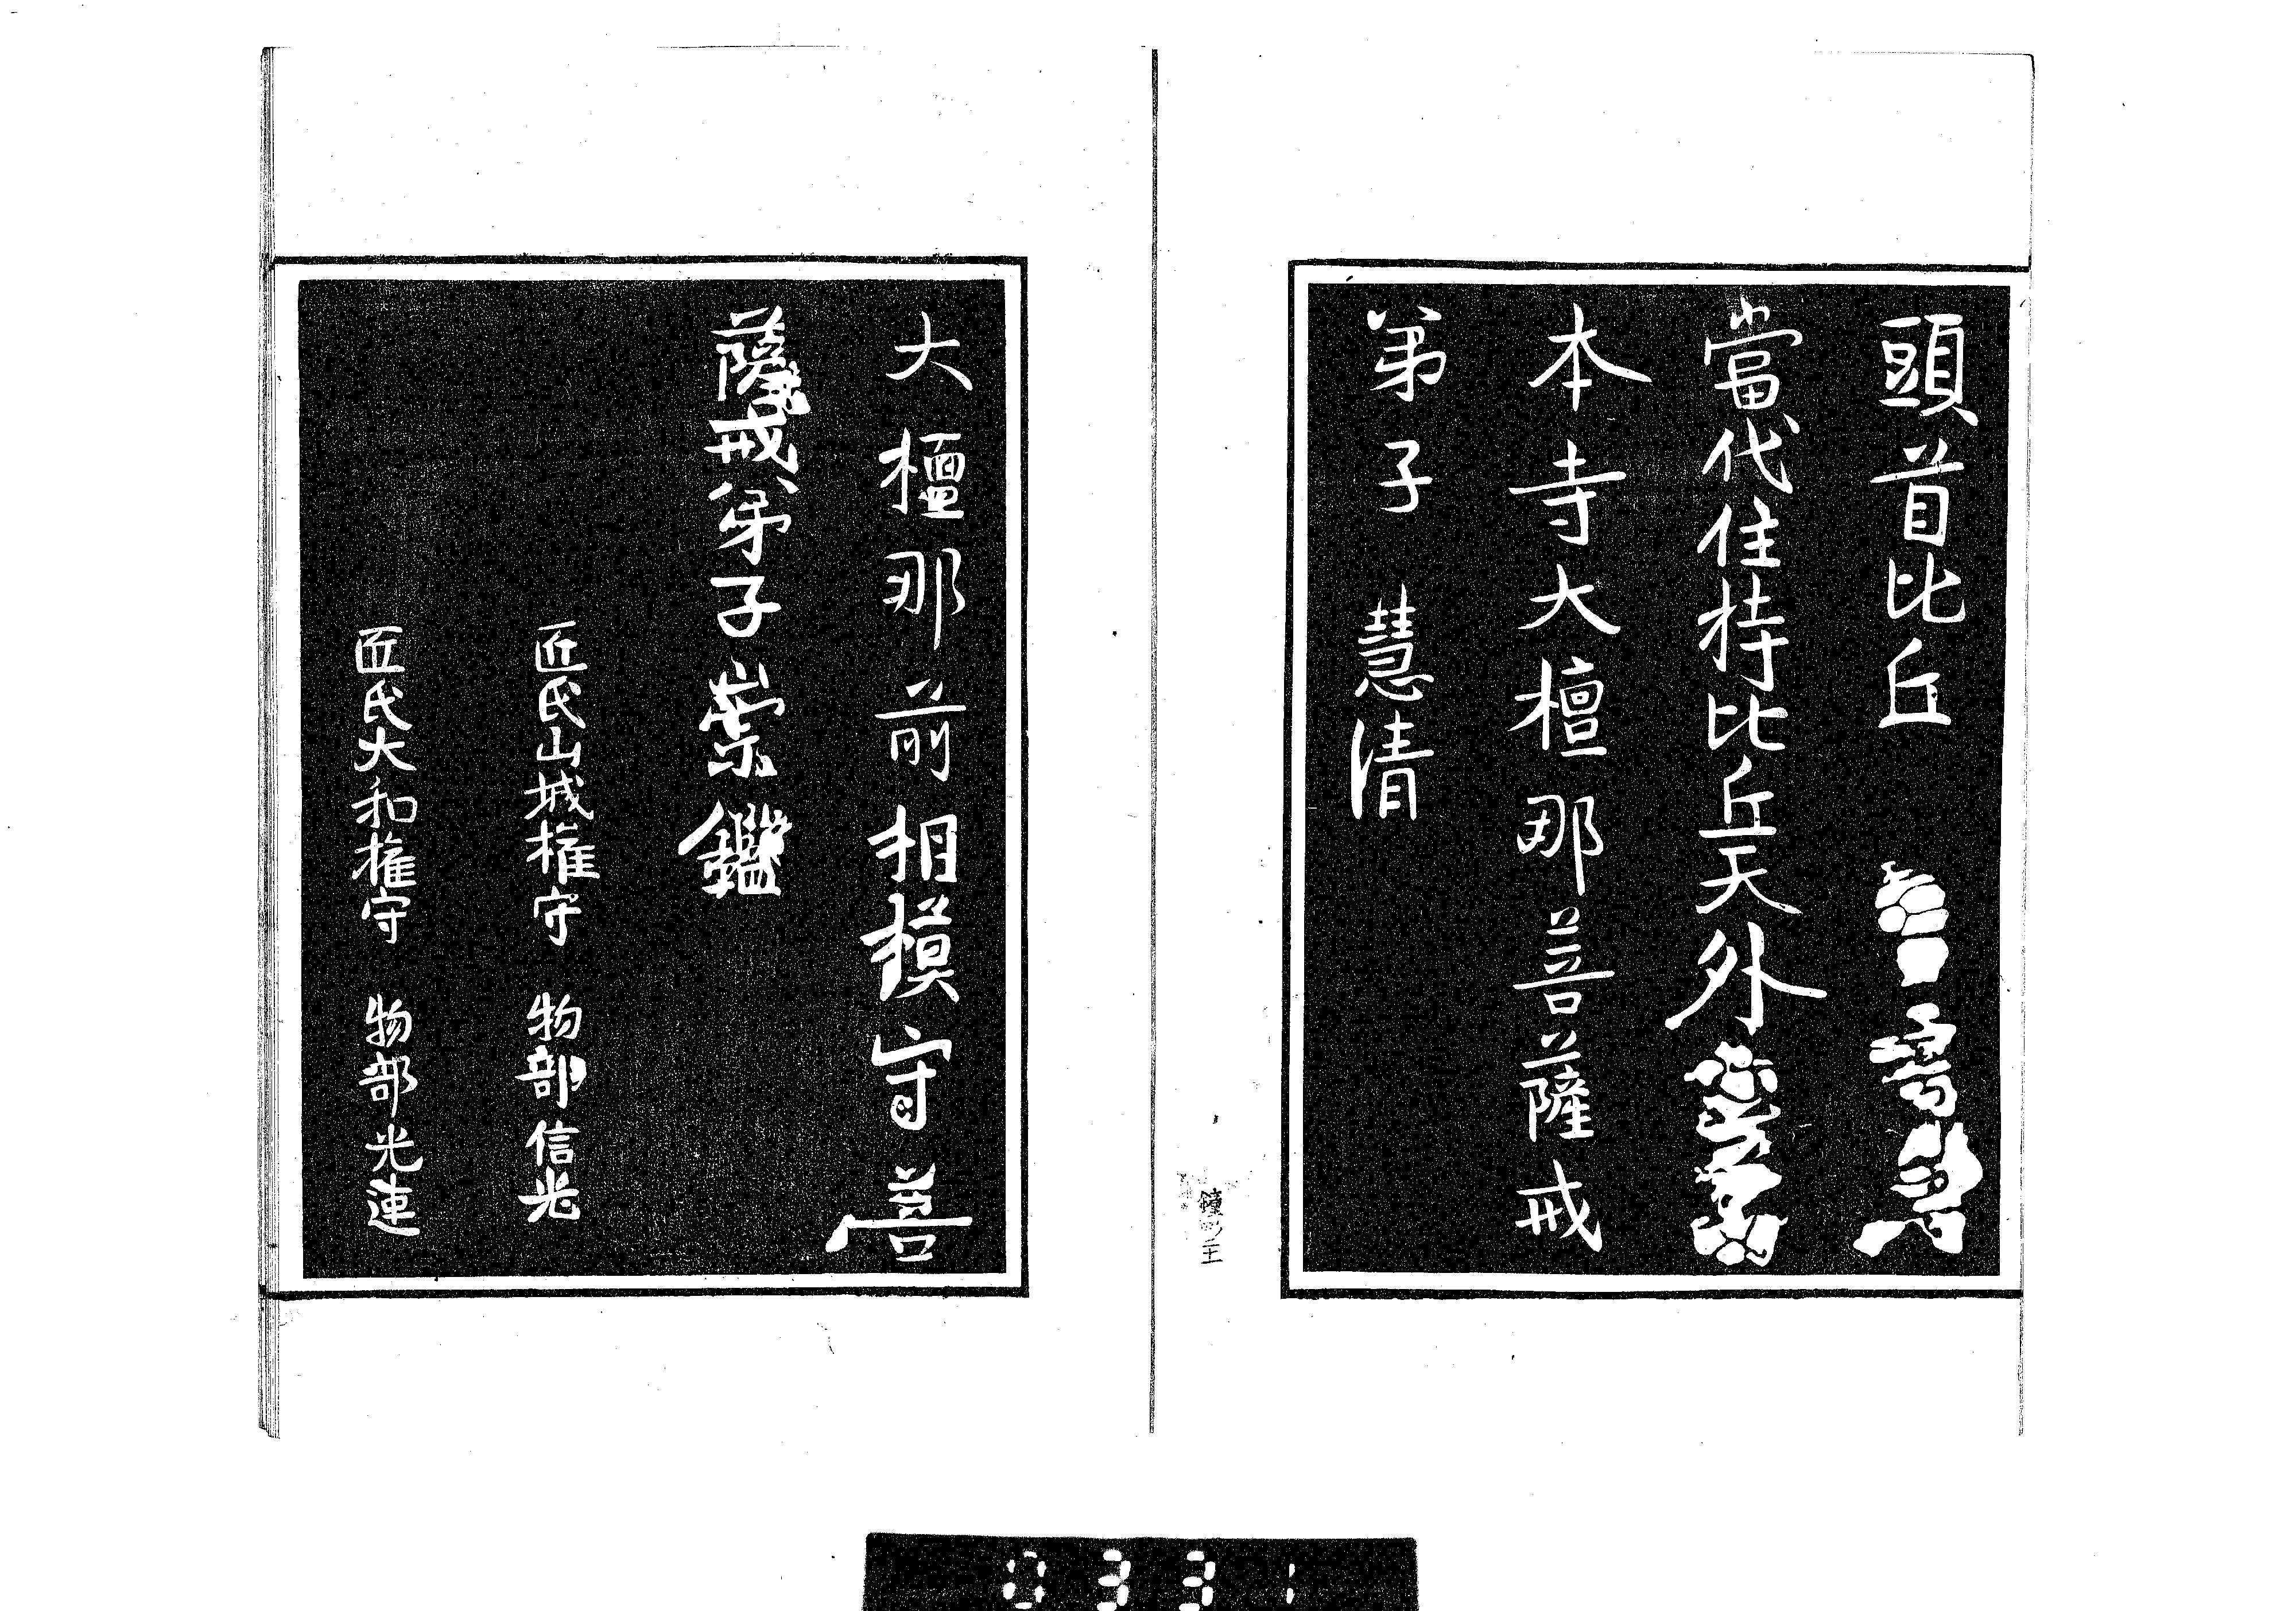 頭首比丘
當代住持比丘天外
本寺大檀那菩薩戒
弟子　慧清
大檀那前相模守菩
薩戒弟子崇鑑
匠氏山城権守　物部信光
匠氏大和権守　物部光連
0331